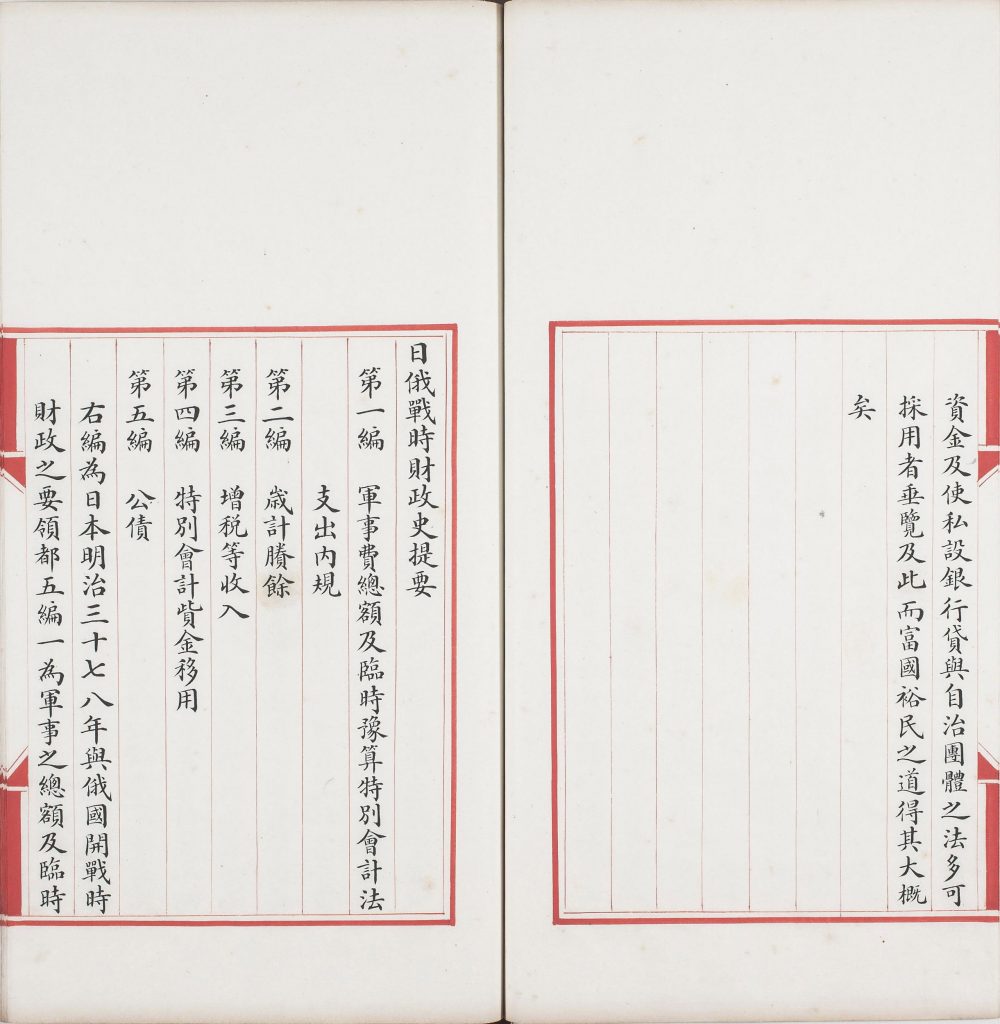 資金及使私設銀行貸與自治團體之法多可
採用者垂覽及此而富國裕民之道得其大概
矣
日俄戰時財政史提要
第一編　軍事費總額及臨時豫算特別會計法
支出内規
第二編　歲計賸餘
第三編　增税等收入
第四編　特別會計貲金移用
第五編　公債
右編為日本明治三十七八年與俄國開戰時
財政之要領都五編一為軍事之總額及臨時